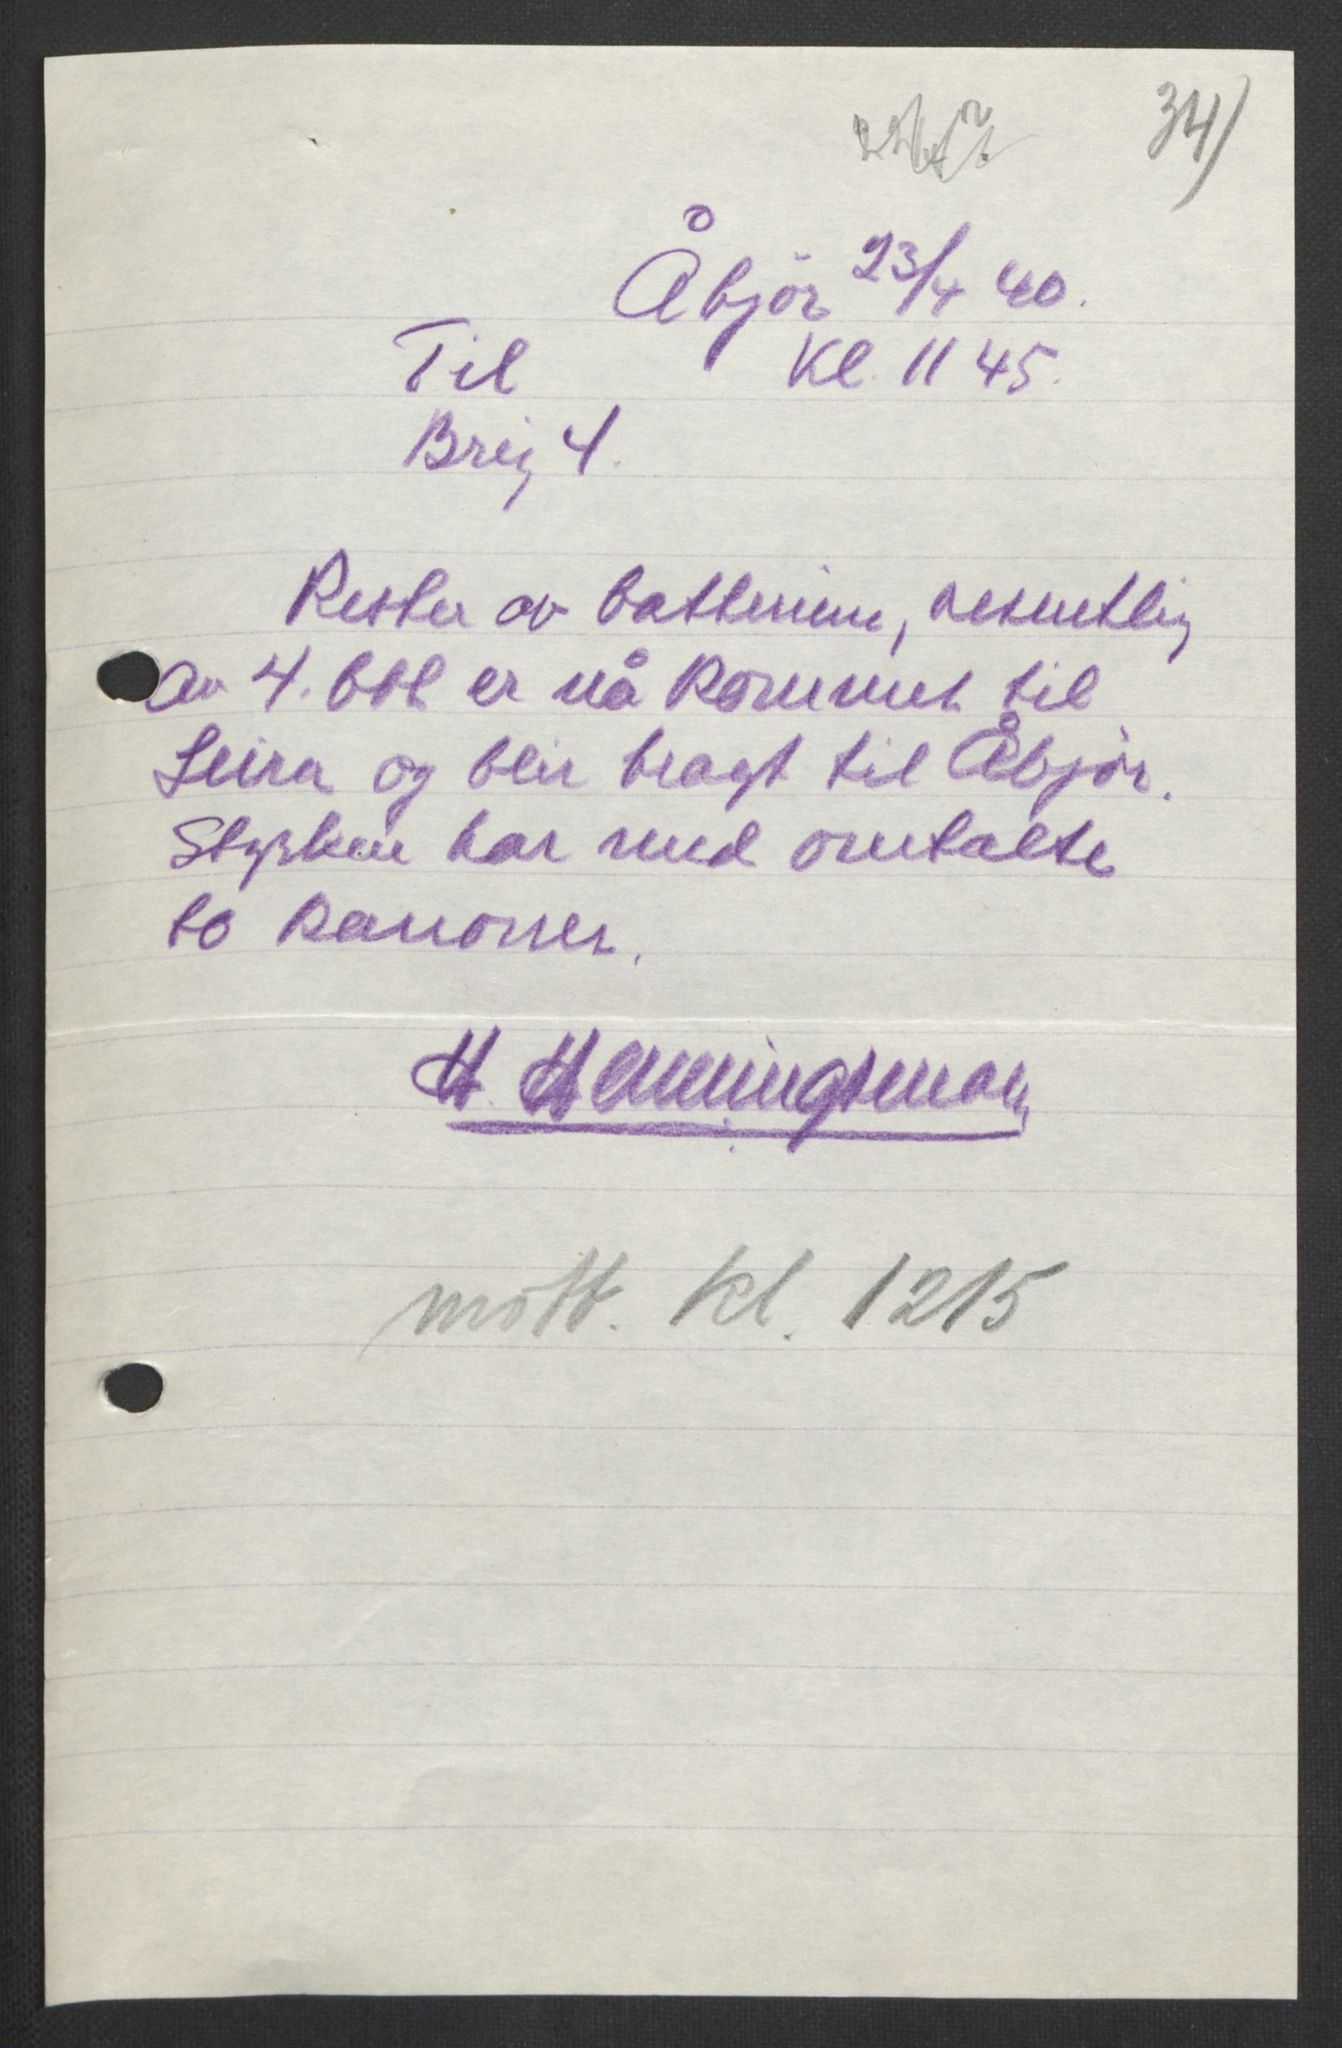 34)
Åbjör 23/4 40.
Til Kl. 11 45.
Brig 4.
Rester av batteriene, vesentlig
av 4. btt er nå kommet til
Leira og blir bragt til Åbjör.
Styrken har med omtalte
to kanoner.
H. Henningsmoen
mött. kl. 1215